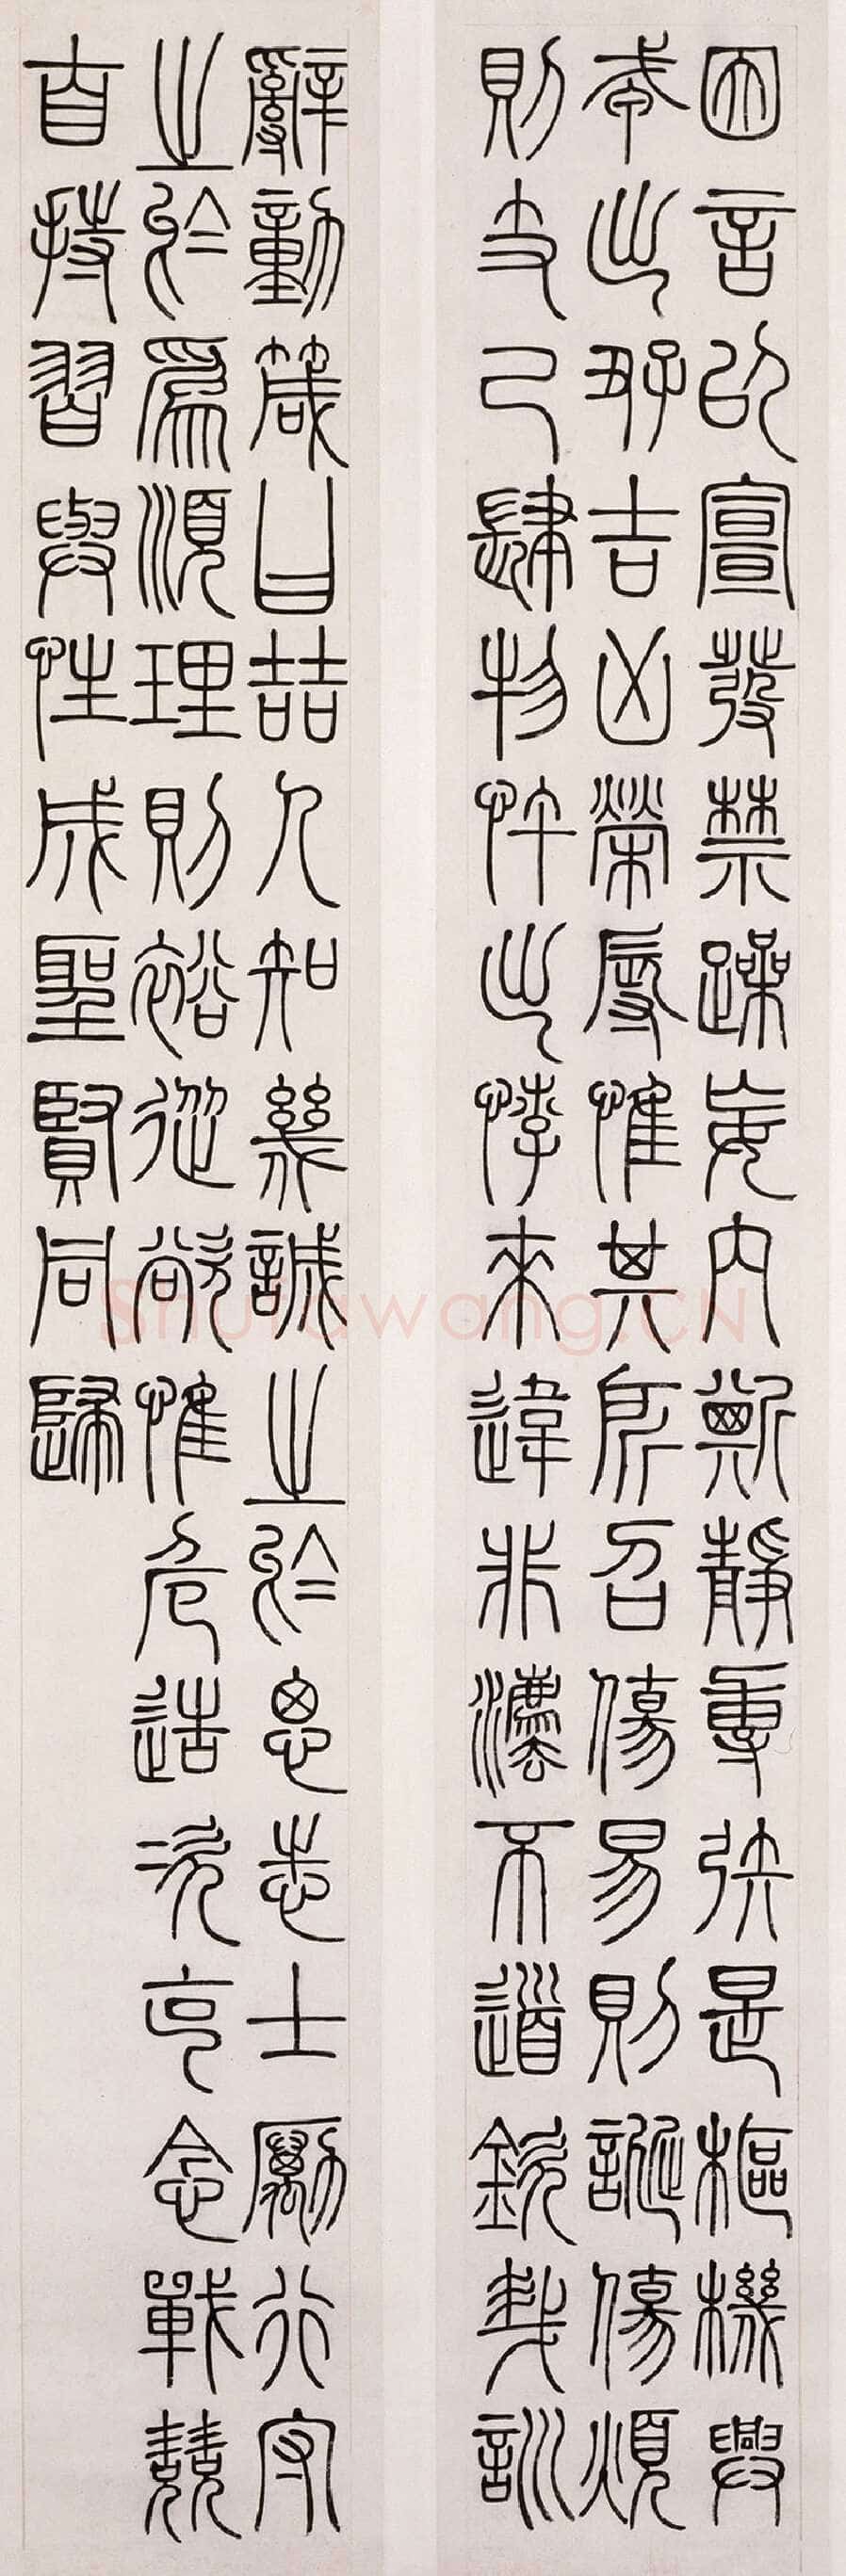 因言以宣發禁躁妄內斯靜專矧是樞機興
戎出好吉凶榮辱惟其所召傷易則誕傷煩
則支己肆物忤出悖來違非灋不道欽哉訓
辭動箴曰喆人知幾誠之於思志士勵行守
之於爲順理則裕從欲惟危造次克念戰兢
自持習與性成聖賢同歸
Shufawang.CN